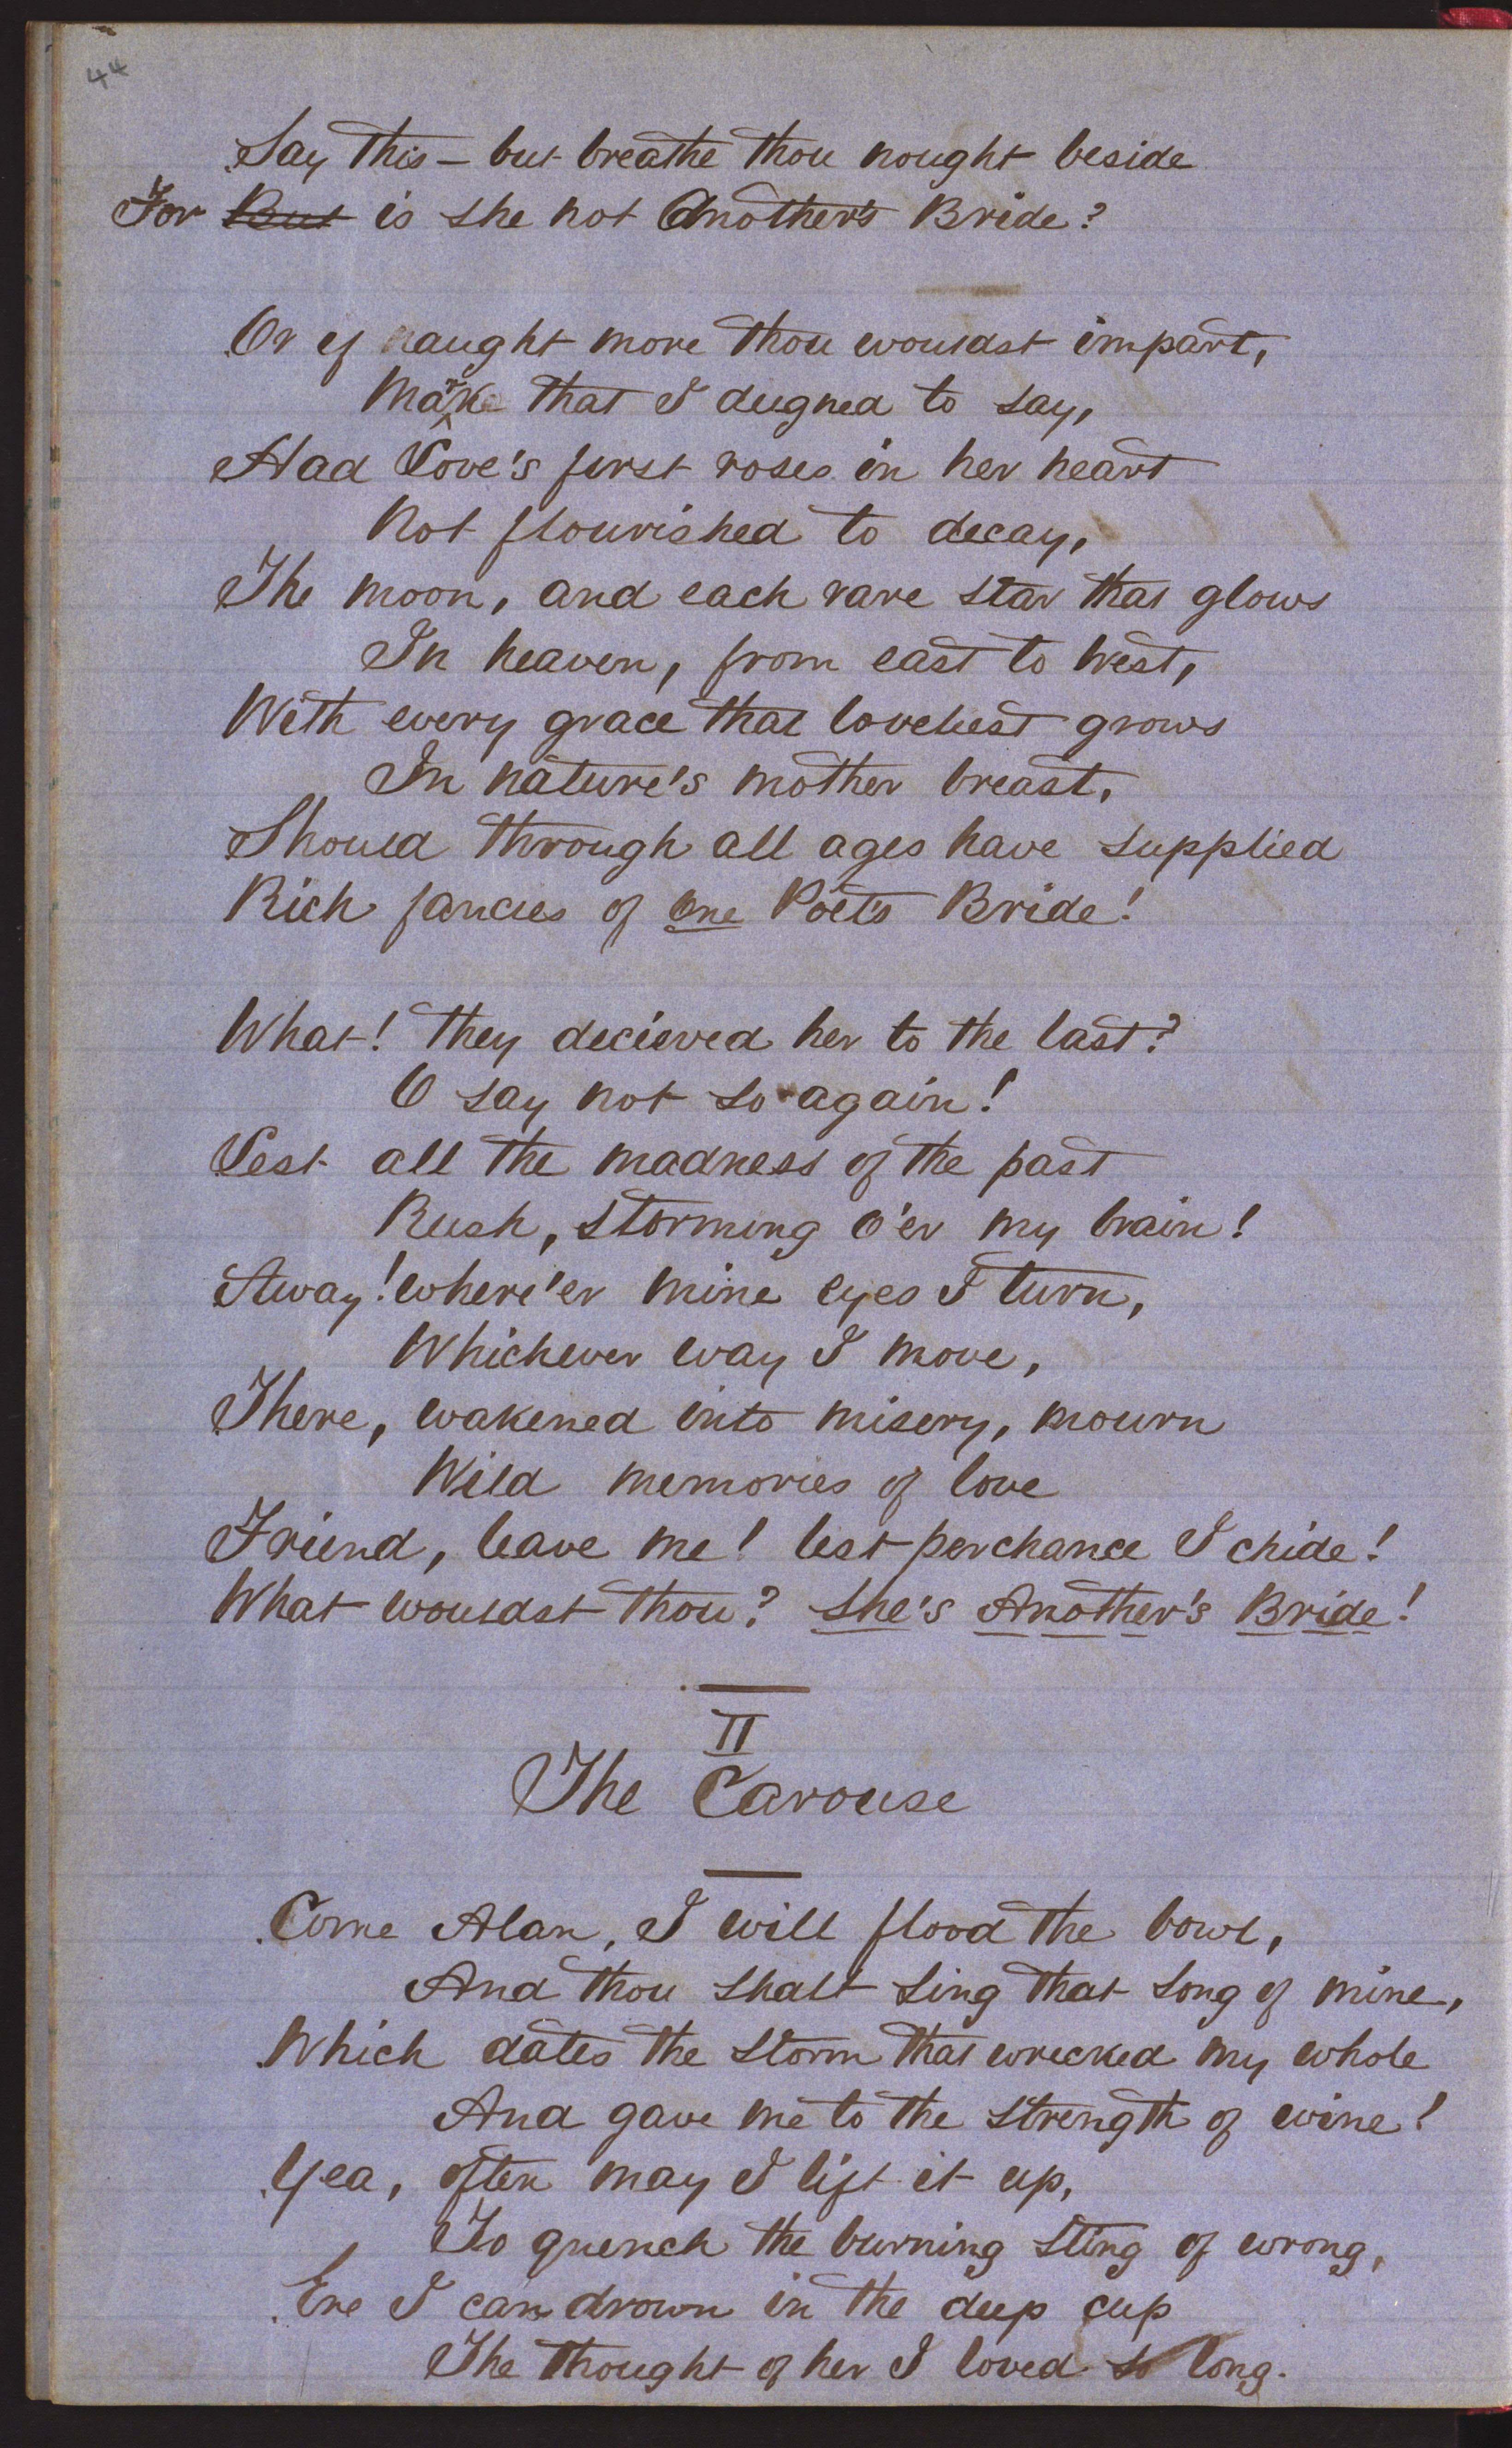 44
Say this – but breathe thou nought beside
For ~~But~~ is she not Another's Bride?
Or if naught more thou wouldst impart,
Mark that I deigned to say,
Had Love's first roses in her heart
Not flourished to decay,
The moon, and each rare star that glows
In heaven, from east to west,
With every grace that loveliest grows
In nature's mother breast,
Should through all ages have supplied
Rich fancies of one Poet's Bride!
What! they decieved her to the last?
O say not so again!
Lest all the madness of the past
Rush, storming o'er my brain!
Away! where'er mine eyes I turn,
Whichever way I move,
There, wakened into misery, mourn
Wild memories of love
Friend, leave me! lest perchance I chide!
What wouldst thou? She's Another's Bride!
II
The Carouse
Come Alan, I will flood the bowl,
And thou shalt sing that song of mine,
Which dates the storm that wrecked my whole
And gave me to the strength of wine!
Yea, often may I lift it up,
To quench the burning sting of wrong,
Ere I can drown in the deep cup
The thought of her I loved so long.